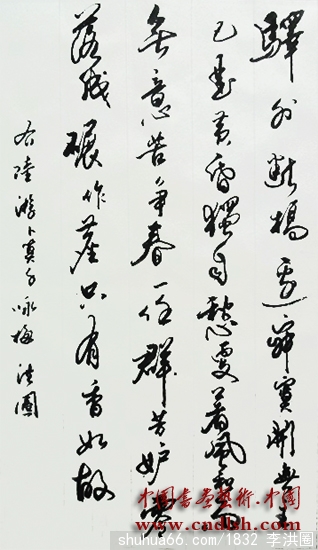 驛外斷橋邊寂寞開無主
已是黃昏獨自愁更著風和雨
無意苦爭春一任群芳妒零
落成碾作塵只有香如故
右陸游卜算子咏梅 洪圃
中国书画艺术.中国
shuhua66.com/1832 李洪圃